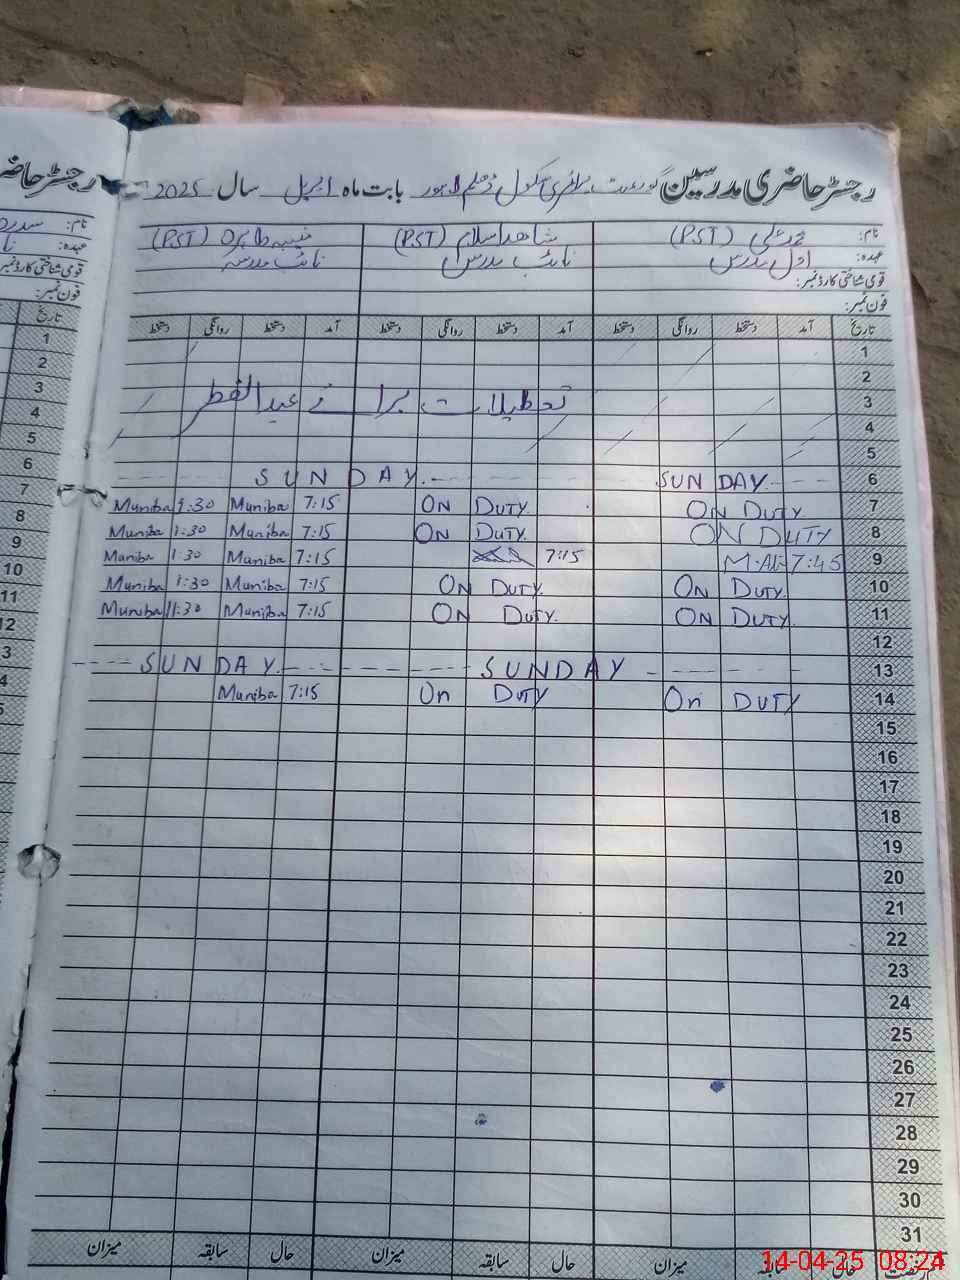 رجسٹر حاضری مدرسین گورنمنٹ پرائمری سکول بابت ماہ اپریل سال 2025
نام: محمد علی (PST) شاھد اسلام (PST) منیبہ طاہرہ (PST)
عہدہ: اول مدرس نائب مدرس نائب مدرسہ
قومی شناختی کارڈ نمبر:
فون نمبر:
تاریخ آمد دستخط روانگی دستخط آمد دستخط روانگی دستخط آمد دستخط روانگی دستخط
1
2
3 تعطیلات برائے عیدالفطر
4
5
6 SUNDAY SUNDAY
7 ON DUTY ON DUTY 7:15 Muniba 1:30 Muniba
8 ON DUTY ON DUTY 7:15 Muniba 1:30 Muniba
9 7:45 M.Ali 7:15 7:15 Muniba 1:30 Muniba
10 ON DUTY ON DUTY 7:15 Muniba 1:30 Muniba
11 ON DUTY ON DUTY 7:15 Muniba 11:30 Muniba
12
13 SUNDAY SUNDAY
14 On DUTY On DUTY 7:15 Muniba
15
16
17
18
19
20
21
22
23
24
25
26
27
28
29
30
31
حال سابقہ میزان حال سابقہ میزان حال سابقہ میزان
رجسٹر حاضر
نام: سدرہ
عہدہ: نا
قومی شناختی کارڈ نمبر
فون نمبر:
تاریخ
1
2
3
4
5
6
7
8
9
10
11
12
14-04-25 08:24